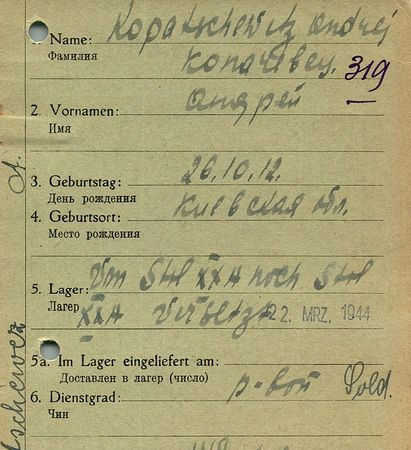 1. Name: Kopatschewitz Andrej
Фамилия Копачевич. 319
2. Vornamen: Андрей
Имя
3. Geburtstag: 26.10.12.
День рождения
4. Geburtsort: Киевская обл.
Место рождения
5. Lager: Vom Stal XXA nach Stal
Лагерь XXA versetzt 22. MRZ. 1944
5a. Im Lager eingeliefert am:
Доставлен в лагерь (число)
6. Dienstgrad: р-вой Sold.
Чин
A.